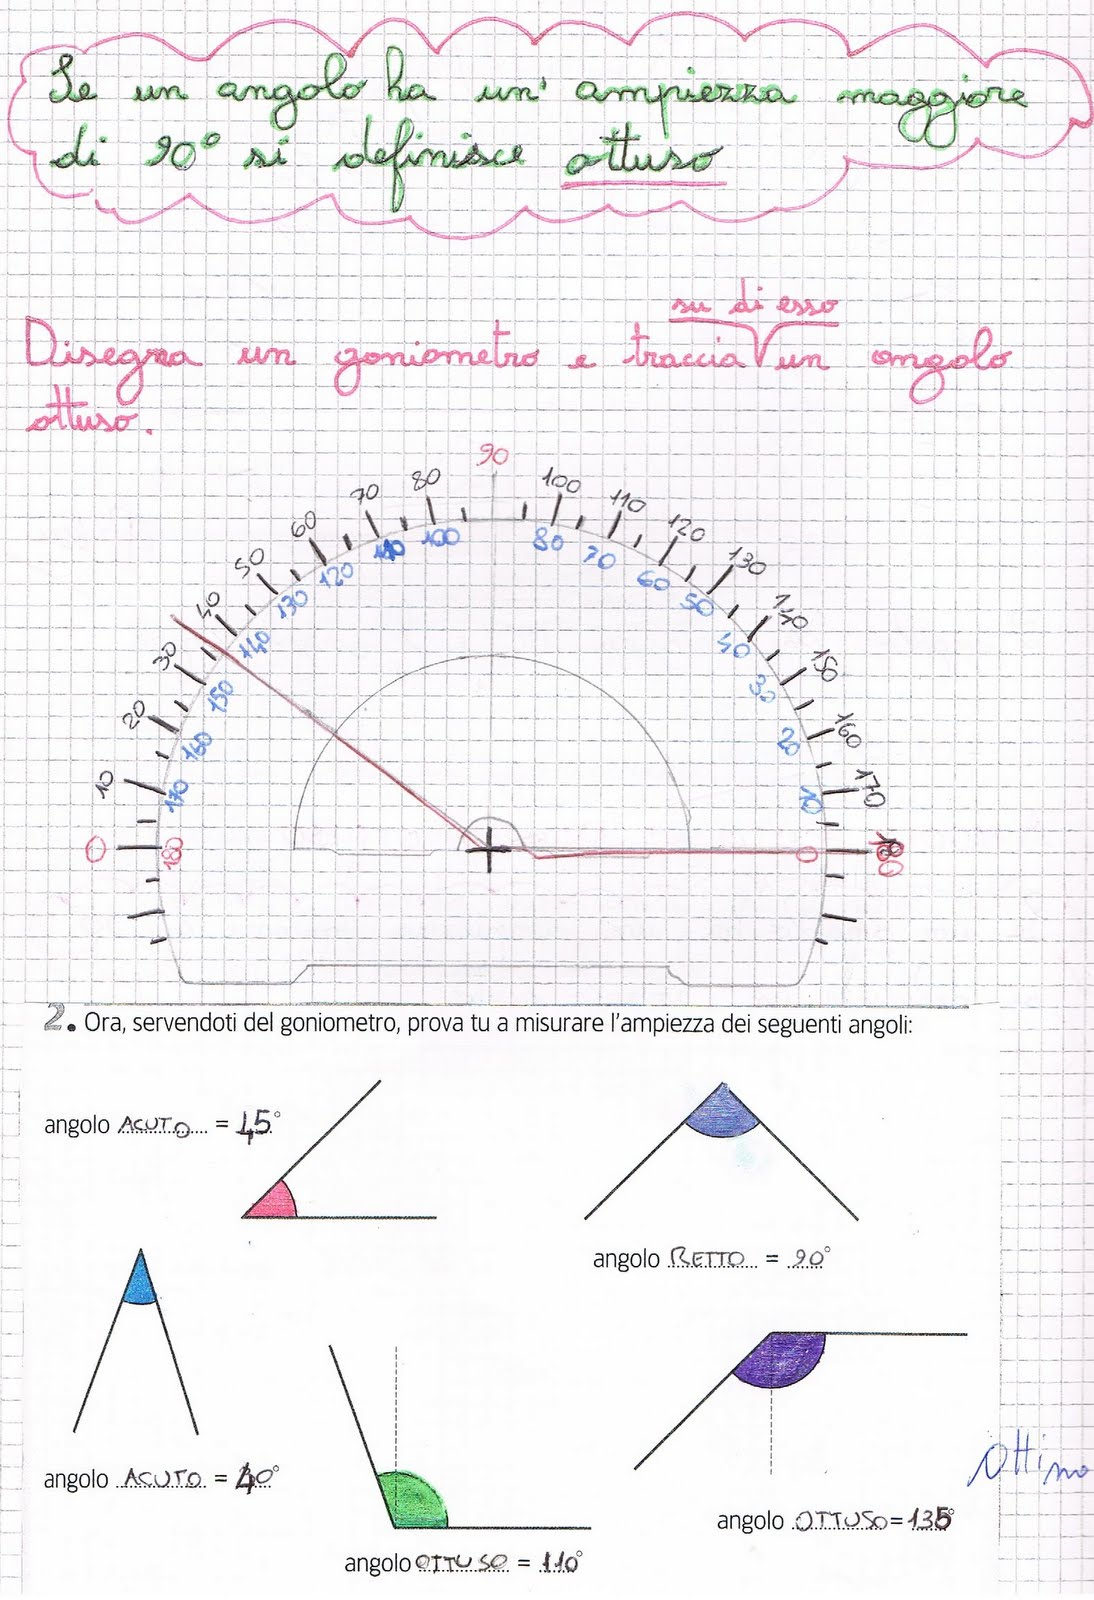 Se un angolo ha un' ampiezza maggiore
di 90° si definisce ottuso
su di esso
Disegna un goniometro e traccia un angolo
ottuso.
90
80 100
70 110
60 120
50 130
40 140
30 150
20 160
10 170
0 180
100 80
110 70
120 60
130 50
140 40
150 30
160 20
170 10
180 0
2. Ora, servendoti del goniometro, prova tu a misurare l'ampiezza dei seguenti angoli:
angolo ACUTO = 45°
angolo RETTO = 90°
angolo ACUTO = 40°
angolo OTTUSO = 135°
angolo OTTUSO = 110°
Ottimo